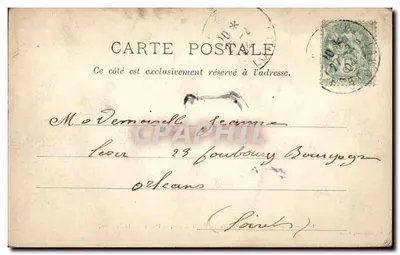 CARTE POSTALE
Ce côté est exclusivement réservé à l'adresse.
Mademoiselle Jeanne
23 faubourg Bourgogne
Orléans
(Loiret)